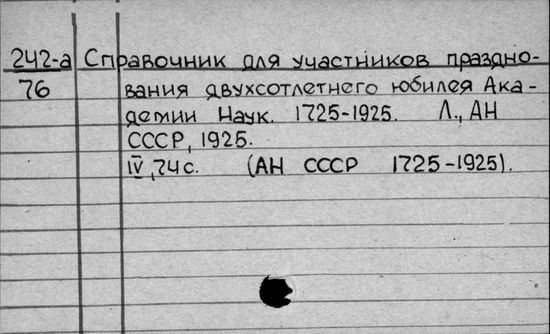 242-а Справочник для участников праздно-
76 вания двухсотлетнего юбилея Ака-
демии Наук. 1725-1925. Л., АН
СССР, 1925.
IV, 74 с. (АН СССР 1725-1925).